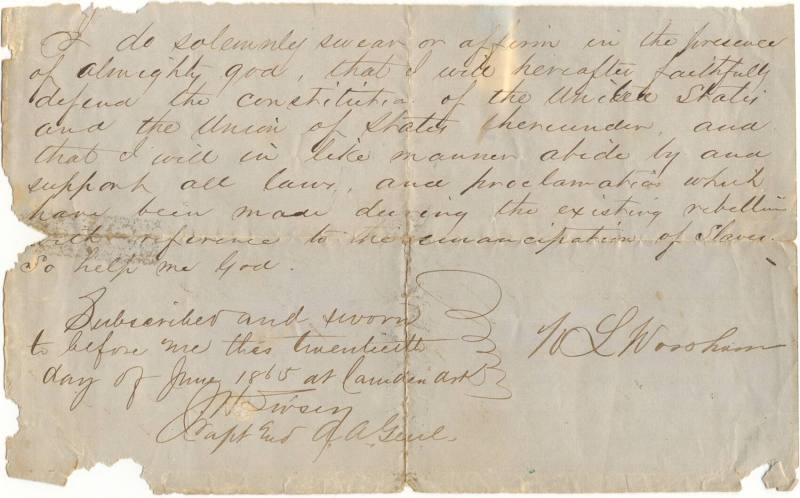 I do solemnly swear or affirm in the presence
of almighty god, that I will hereafter faithfully
defend the constitution of the United States
and the Union of States thereunder, and
that I will in like manner abide by and
support all laws, and proclamations which
have been made during the existing rebellion
with reference to the emancipation of Slaves.
So help me God.
Subscribed and sworn
to before me this twentieth
day of June 1865 at Camden Ark
Capt and A. A. Genl.
L Worsham